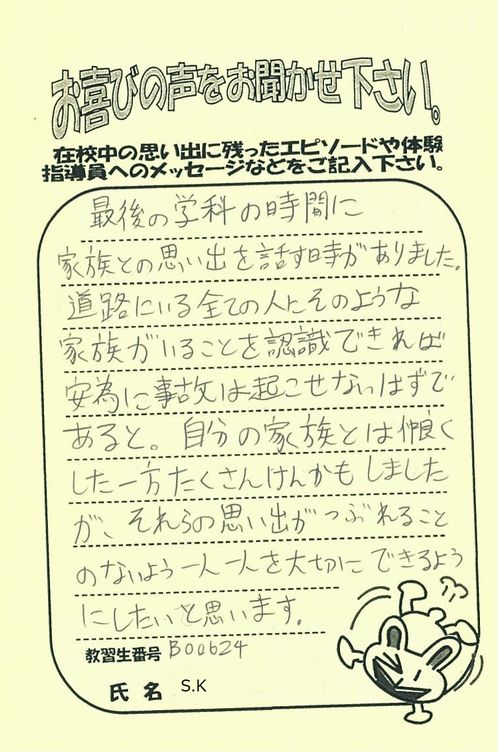 お喜びの声をお聞かせ下さい。
在校中の思い出に残ったエピソードや体験
指導員へのメッセージなどをご記入下さい。
最後の学科の時間に
家族との思い出を話す時がありました。
道路にいる全ての人にそのような
家族がいることを認識できれば
安為に事故は起こせないはずで
あると。自分の家族とは仲良く
した一方たくさんけんかもしました
が、それらの思い出がつぶれること
のないよう一人一人を大切にできるよう
にしたいと思います。
教習生番号 B00624
氏名 S.K